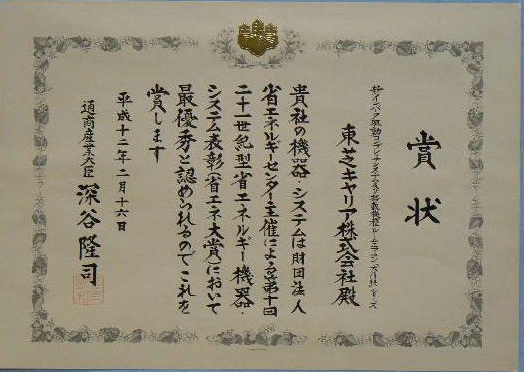 賞状
東芝キャリア株式会社殿
貴社の機器・システムは財団法人
省エネルギーセンター主催による第十回
二十一世紀型省エネルギー機器・
システム表彰（省エネ大賞）において
最優秀と認められるのでこれを
賞します
平成十二年二月十六日
通商産業大臣 深谷隆司